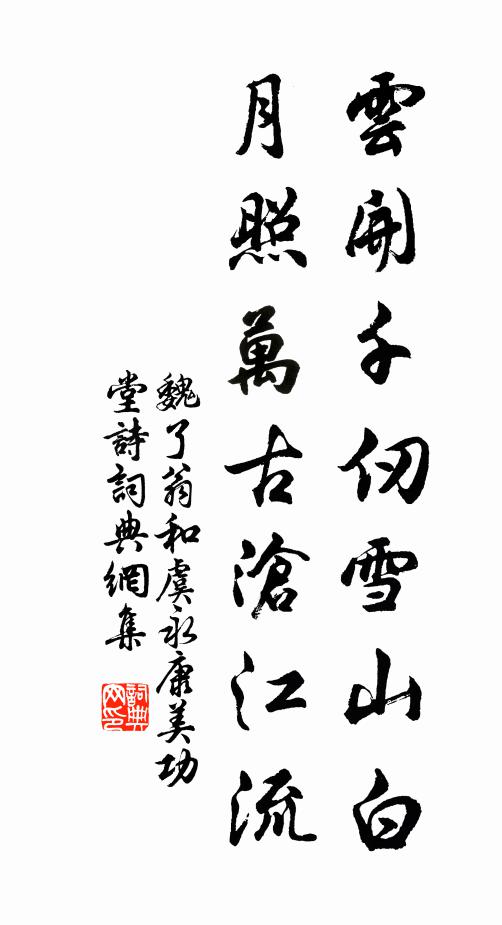 雲開千仞雪山白
月照萬古滄江流
魏了翁和虞永康美功
堂詩詞典網集
詞典
网印